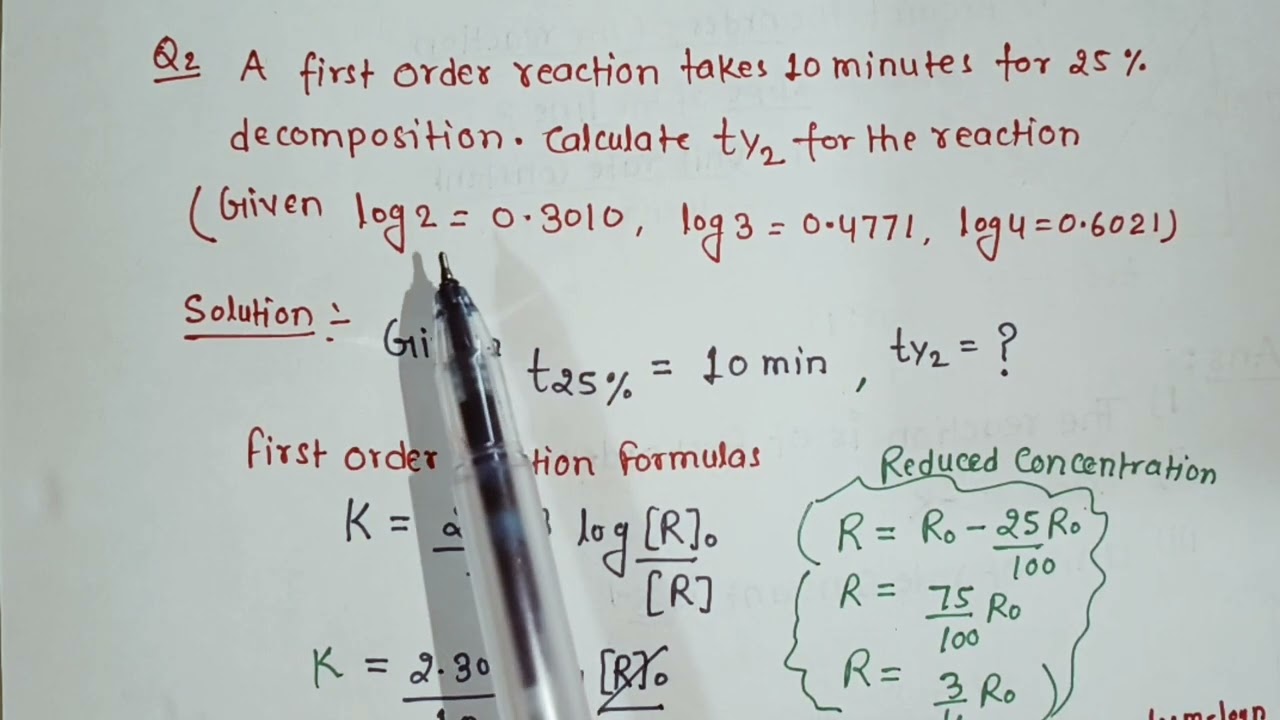 Q2 A first order reaction takes 10 minutes for 25 %
decomposition. Calculate t½ for the reaction
(Given log 2 = 0.3010, log 3 = 0.4771, log 4 = 0.6021)
Solution :-
t25% = 10 min, t½ = ?
first order formulas
Reduced Concentration
K = log [R]₀
[R]
(R = R₀ - 25 R₀
100
R = 75 R₀
100
K = 2.30 [R]₀
R = 3 R₀)